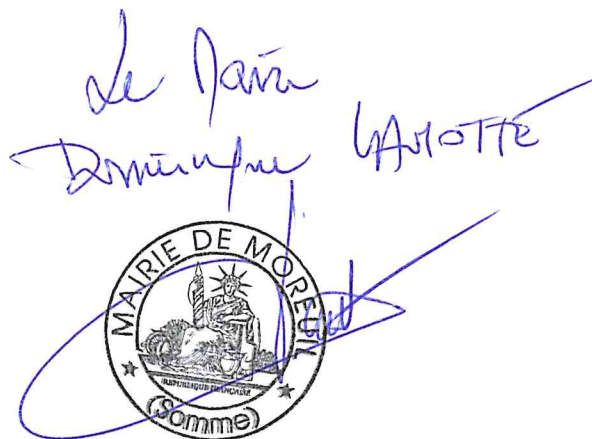 Le Maire
Dominique LAMOTTE
MAIRIE DE MOREUIL
REPUBLIQUE FRANCAISE
(Somme)